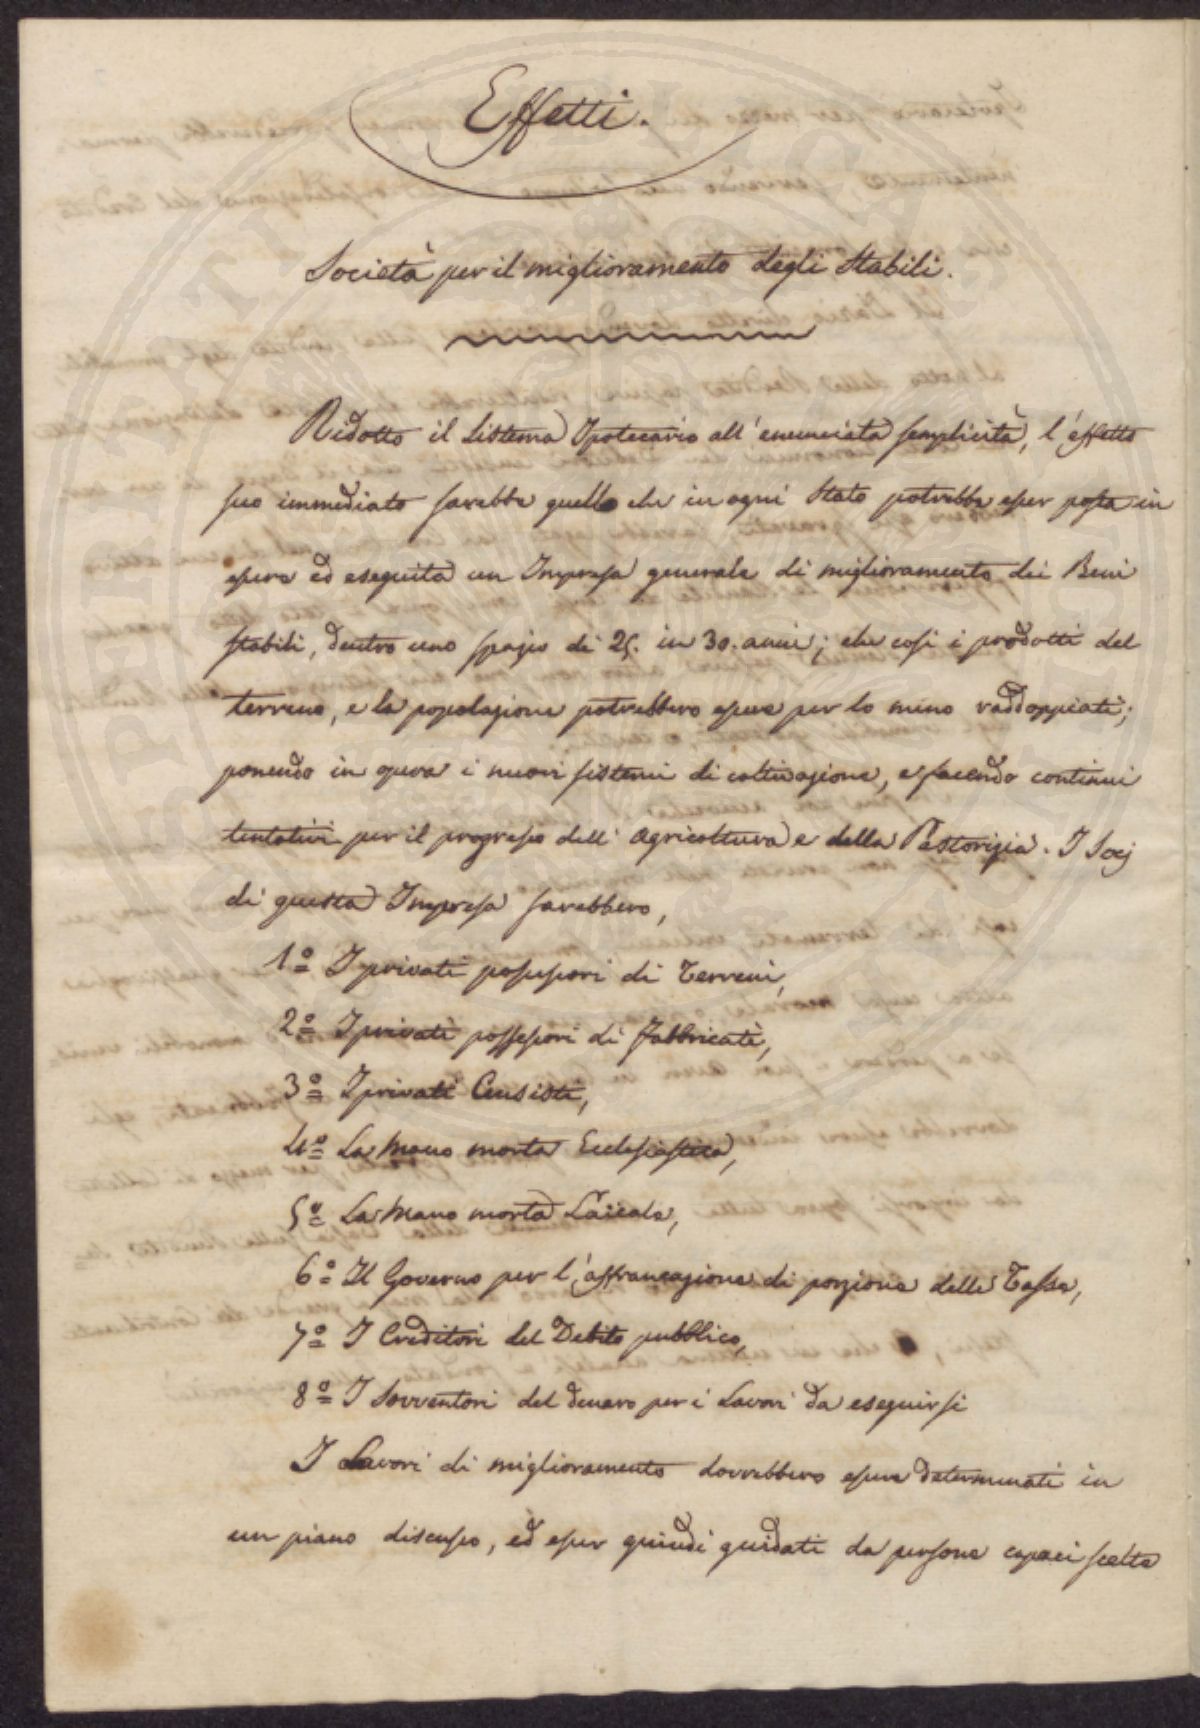 Effetti.
Società per il miglioramento degli Stabili.
Ridotto il Sistema Ipotecario all' enunciata semplicità, l'effetto
suo immediato sarebbe quello che in ogni Stato potrebbe esser posta in
opera ed eseguita un Impresa generale di miglioramento dei Beni
stabili, dentro uno spazio di 25. in 30. anni; che così i prodotti del
terreno, e la popolazione potrebbero essere per lo meno raddoppiati;
ponendo in opera i nuovi sistemi di coltivazione, e facendo continui
tentativi per il progresso dell' agricoltura e della Pastorizia. I Socj
di questa Impresa sarebbero,
1º I privati possessori di Terreni,
2º I privati possessori di fabbricati,
3º I privati Censisti,
4º La Mano morta Ecclesiastica,
5º La Mano morta Laicale,
6º Il Governo per l'affrancazione di porzione delle Tasse,
7º I Creditori del Debito pubblico,
8º I Sovventori del denaro per i Lavori da eseguirsi
I Lavori di miglioramento dovrebbero essere determinati in
un piano discusso, ed esser quindi guidati da persone capaci scelte